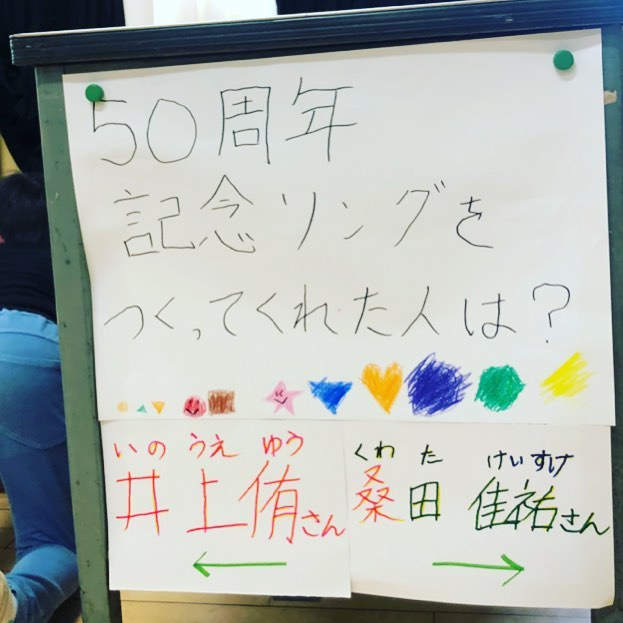 50周年
記念ソングを
つくってくれた人は?
いのうえ ゆう
井上侑さん
くわた けいすけ
桑田 佳祐さん